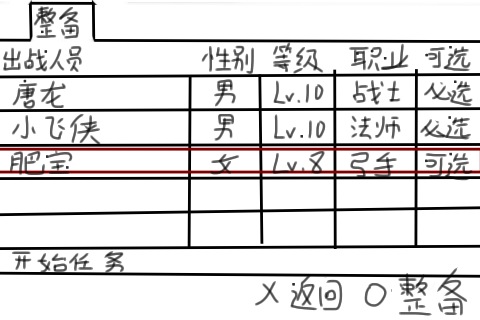 整备
出战人员 性别 等级 职业 可选
唐龙 男 Lv.10 战士 必选
小飞侠 男 Lv.10 法师 必选
肥宝 女 Lv.8 弓手 可选
开始任务
X返回 O整备